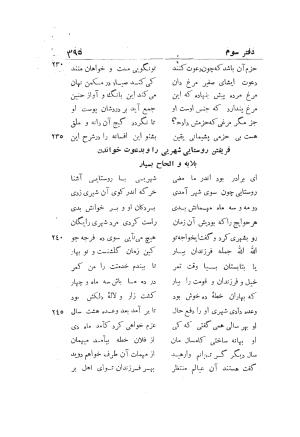 دفتر سوم ۳۹۵
حزم آن باشد که چون دعوت کنند تو نگویی مست و خواهان منند
دعوت ایشان صفیر مرغ دان که کند صیاد در مکمن نهان
مرغ مرده پیش بنهاده که این می کند این بانگ و آواز حنین
مرغ پندارد که جنس اوست او جمع آید بر دردشان پوست او
جز مگر مرغی که حزمش داد حق تا نگردد گیج آن دانه و ملق
هست بی حزمی پشیمانی یقین بشنو این افسانه را در شرح این ۲۳۵
فریفتن روستایی شهریی را و بدعوت خواندن
بلابه و الحاح بسیار
ای برادر بود اندر ما مضی شهریی با روستایی آشنا
روستایی چون سوی شهر آمدی خرگه اندر کوی آن شهری زدی
دو مه و سه ماه مهمانش بدی بر دکان او و بر خوانش بدی
هر حوایج را که بودش آن زمان راست کردی مرد شهری رایگان
رو بشهری کرد و گفت ای خواجه تو هیچ می نایی سوی ده فرجه جو ۲۴۰
الله الله جمله فرزندان بیار کین زمان گلشنست و نو بهار
یا بتابستان بیا وقت ثمر تا ببندم خدمتت را من کمر
خیل و فرزندان و قومت را بیار در ده ما باش سه ماه و چهار
که بهاران خطهٔ ده خوش بود کشت زار و لالهٔ دلکش بود
وعده دادی شهری او را دفع حال تا بر آمد بعد وعده هشت سال ۲۴۵
او بهر سالی همی گفتی که کی عزم خواهی کرد کامد ماه دی
او بهانه ساختی کامسال مان از فلان خطه بیامد میهمان
سال دیگر گر توانم وارهید از مهمات آن طرف خواهم دوید
گفت هستند آن عیالم منتظر بهر فرزندان تو ای اهل بر